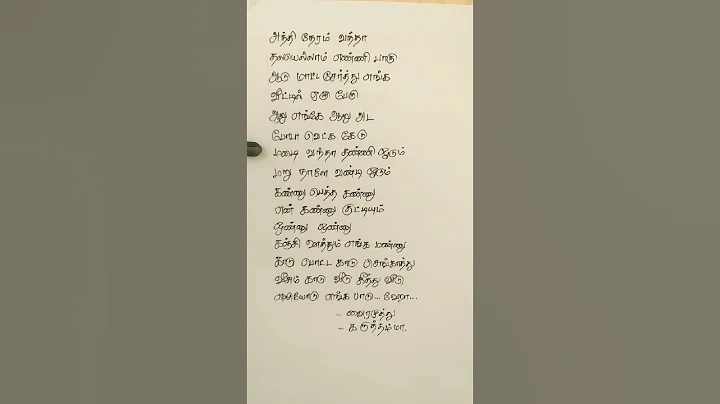 அந்தி நேரம் வந்தா
தலயெல்லாம் எண்ணி பாரு
ஆடு மாட்ட சேர்த்து எங்க
வீட்டில் ஏழு பேரு
ஆறு எங்கே ஆறு அட
போயா வெட்க கேடு
மழை வந்தா தண்ணி ஓடும்
மறு நாளே வண்டி ஓடும்
கண்ணு பெத்த கண்ணு
என் கண்ணு குட்டியும்
ஒண்ணு ஒண்ணு
கஞ்சி ஊத்தும் எங்க மண்ணு
காடு பொட்ட காடு செங்காத்து
வீசும் காடு வீடு தீத்து வீடு
எலியோடு எங்க பாடு...
- வைரமுத்து
- கருத்தம்மா.